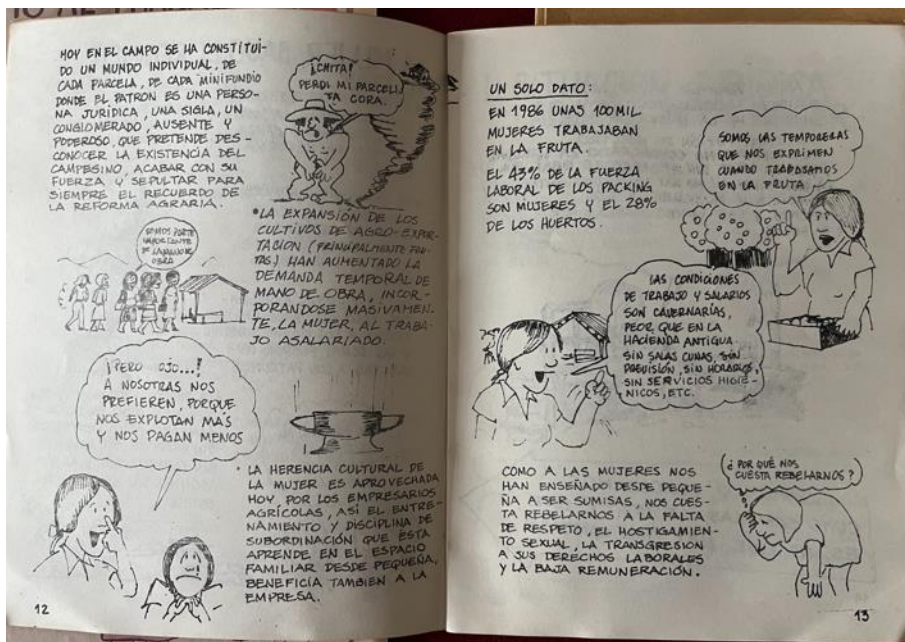 HOY EN EL CAMPO SE HA CONSTITUI-
DO UN MUNDO INDIVIDUAL, DE
CADA PARCELA, DE CADA MINIFUNDIO
DONDE EL PATRON ES UNA PERSO-
NA JURÍDICA, UNA SIGLA, UN
CONGLOMERADO, AUSENTE Y
PODEROSO, QUE PRETENDE DES-
CONOCER LA EXISTENCIA DEL
CAMPESINO, ACABAR CON SU
FUERZA Y SEPULTAR PARA
SIEMPRE EL RECUERDO DE
LA REFORMA AGRARIA.
¡CHITA!
PERDI MI PARCELI-
TA CORA.
SOMOS PARTE
IMPORTANTE
DE LA MANO DE
OBRA
*LA EXPANSIÓN DE LOS
CULTIVOS DE AGRO-EXPOR-
TACION (PRINCIPALMENTE FRU-
TAS) HAN AUMENTADO LA
DEMANDA TEMPORAL DE
MANO DE OBRA, INCOR-
PORANDOSE MASIVAMEN-
TE, LA MUJER, AL TRABA-
JO ASALARIADO.
¡PERO OJO...!
A NOSOTRAS NOS
PREFIEREN, PORQUE
NOS EXPLOTAN MAS
Y NOS PAGAN MENOS
* LA HERENCIA CULTURAL DE
LA MUJER ES APROVECHADA
HOY POR LOS EMPRESARIOS
AGRÍCOLAS, ASÍ EL ENTRE-
NAMIENTO Y DISCIPLINA DE
SUBORDINACIÓN QUE ESTA
APRENDE EN EL ESPACIO
FAMILIAR DESDE PEQUEÑA,
BENEFICIA TAMBIEN A LA
EMPRESA.
12
UN SOLO DATO:
EN 1986 UNAS 100 MIL
MUJERES TRABAJABAN
EN LA FRUTA.
EL 43% DE LA FUERZA
LABORAL DE LOS PACKING
SON MUJERES Y EL 28%
DE LOS HUERTOS.
SOMOS LAS TEMPORERAS
QUE NOS EXPRIMEN
CUANDO TRABAJAMOS
EN LA FRUTA
LAS CONDICIONES
DE TRABAJO Y SALARIOS
SON CAVERNARIAS,
PEOR QUE EN LA
HACIENDA ANTIGUA
SIN SALAS CUNAS, SIN
PREVISIÓN, SIN HORARIOS,
SIN SERVICIOS HIGIE-
NICOS, ETC.
COMO A LAS MUJERES NOS
HAN ENSEÑADO DESDE PEQUE-
ÑA A SER SUMISAS, NOS CUES-
TA REBELARNOS A LA FALTA
DE RESPETO, EL HOSTIGAMIEN-
TO SEXUAL, LA TRANSGRESION
A SUS DERECHOS LABORALES
Y LA BAJA REMUNERACIÓN.
¿POR QUÉ NOS
CUESTA REBELARNOS?
13